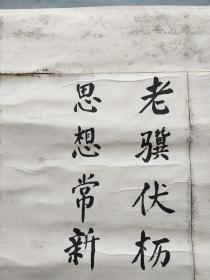 老骥伏枥
思想常新